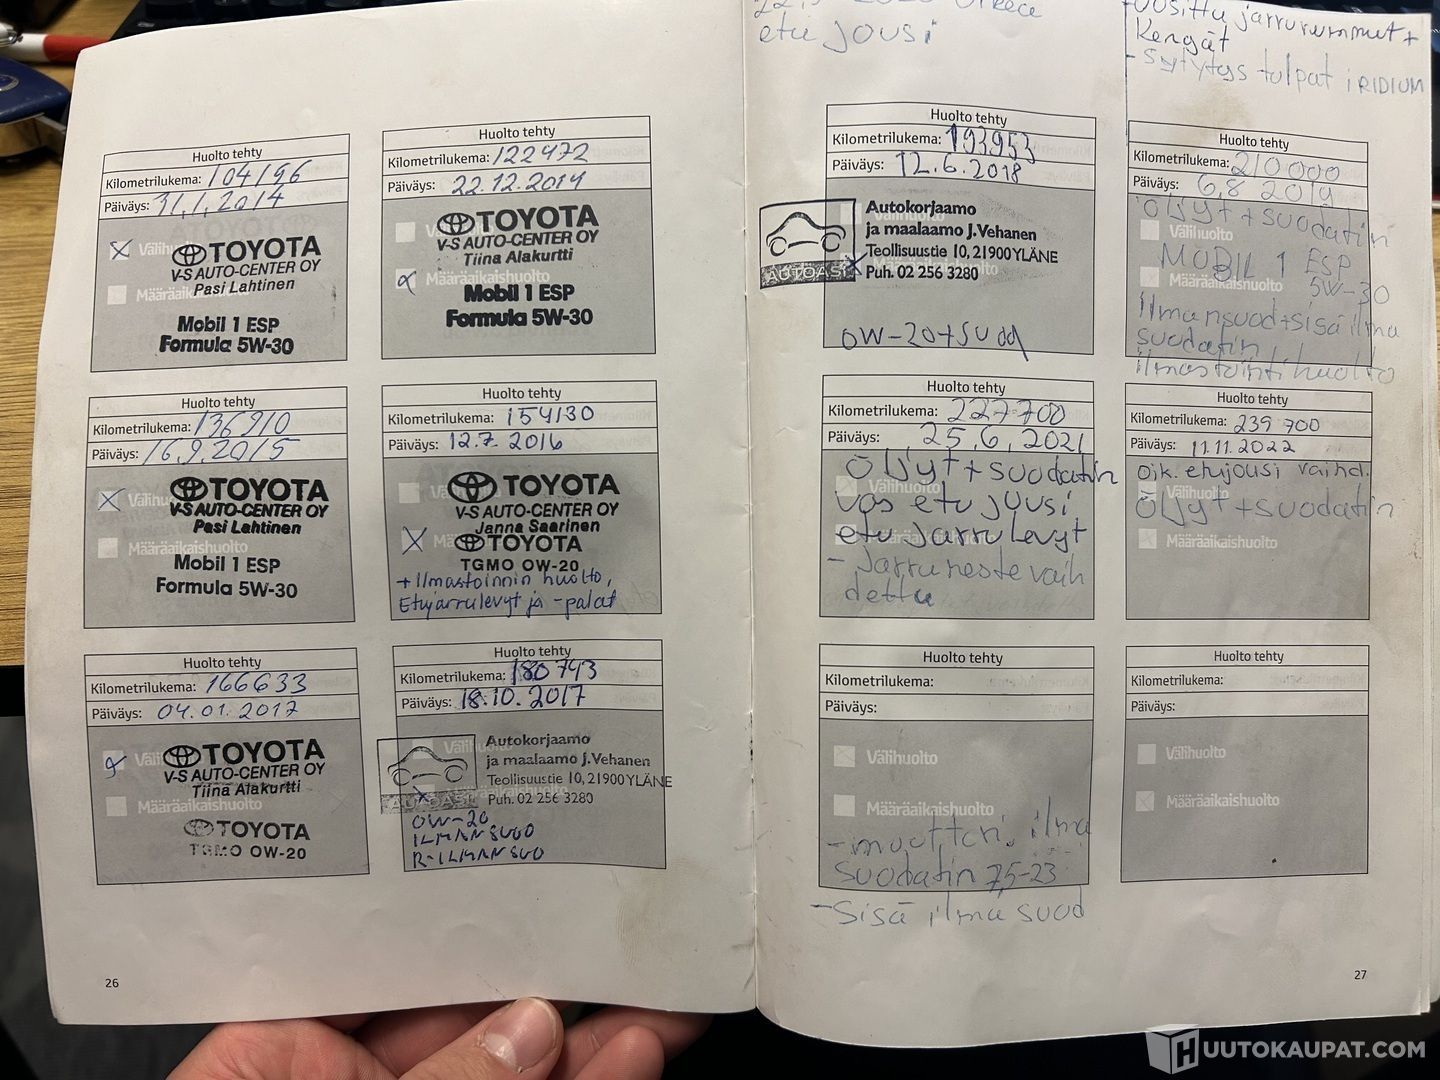 Huolto tehty
Kilometrilukema: 104196
Päiväys: 31.1.2014
Välihuolto
TOYOTA
V-S AUTO-CENTER OY
Pasi Lahtinen
Määräaikaishuolto
Mobil 1 ESP
Formula 5W-30
Huolto tehty
Kilometrilukema: 122472
Päiväys: 22.12.2014
TOYOTA
V-S AUTO-CENTER OY
Tiina Alakurtti
Määräaikaishuolto
Mobil 1 ESP
Formula 5W-30
Huolto tehty
Kilometrilukema: 136910
Päiväys: 16.9.2015
TOYOTA
V-S AUTO-CENTER OY
Pasi Lahtinen
Määräaikaishuolto
Mobil 1 ESP
Formula 5W-30
Huolto tehty
Kilometrilukema: 154130
Päiväys: 12.7.2016
TOYOTA
V-S AUTO-CENTER OY
Janna Saarinen
TOYOTA
TGMO OW-20
+ Ilmastoinnin huolto,
Etujarrulevyt ja -palat
Huolto tehty
Kilometrilukema: 166633
Päiväys: 04.01.2017
TOYOTA
V-S AUTO-CENTER OY
Tiina Alakurtti
Määräaikaishuolto
TOYOTA
TGMO OW-20
Huolto tehty
Kilometrilukema: 180743
Päiväys: 18.10.2017
Välihuolto
Autokorjaamo
ja maalaamo J.Vehanen
Teollisuustie 10, 21900 YLÄNE
Puh. 02 256 3280
AUTOASI
OW-20
ILMANSUOD
R-ILMANSUO
26
etu jousi
Huolto tehty
Kilometrilukema: 193953
Päiväys: 12.6.2018
Autokorjaamo
ja maalaamo J.Vehanen
Teollisuustie 10, 21900 YLÄNE
Puh. 02 256 3280
AUTOASI
OW-20+suod
uusittu jarrurummut +
kengät
- sytytys tulpat iRIDIUM
Huolto tehty
Kilometrilukema: 210000
Päiväys: 6.8 2019
Öljyt + suodatin
Välihuolto
MOBIL 1 ESP
5W-30
Määräaikaishuolto
Ilmansuod+sisä ilma
suodatin
ilmastointi huolto
Huolto tehty
Kilometrilukema: 227700
Päiväys: 25.6.2021
Öljyt + suodatin
Välihuolto
vas etu jousi
etu jarrulevyt
Määräaikaishuolto
- Jarruneste vaih
dettu
Huolto tehty
Kilometrilukema: 239 700
Päiväys: 11.11.2022
Oik. etujousi vaihd.
Välihuolto
Öljyt + suodatin
Määräaikaishuolto
Huolto tehty
Kilometrilukema:
Päiväys:
Välihuolto
Määräaikaishuolto
- moottori, ilma
suodatin 7,5-23
- Sisä ilma suod
Huolto tehty
Kilometrilukema:
Päiväys:
Välihuolto
Määräaikaishuolto
27
HUUTOKAUPAT.COM